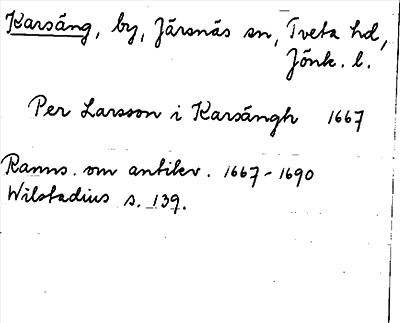 Karsäng, by, Järsnäs sn, Tveta hd,
Jönk. l.
Per Larsson i Karsängh 1667
Ramns. om antikv. 1667-1690
Wilstadius s. 139.